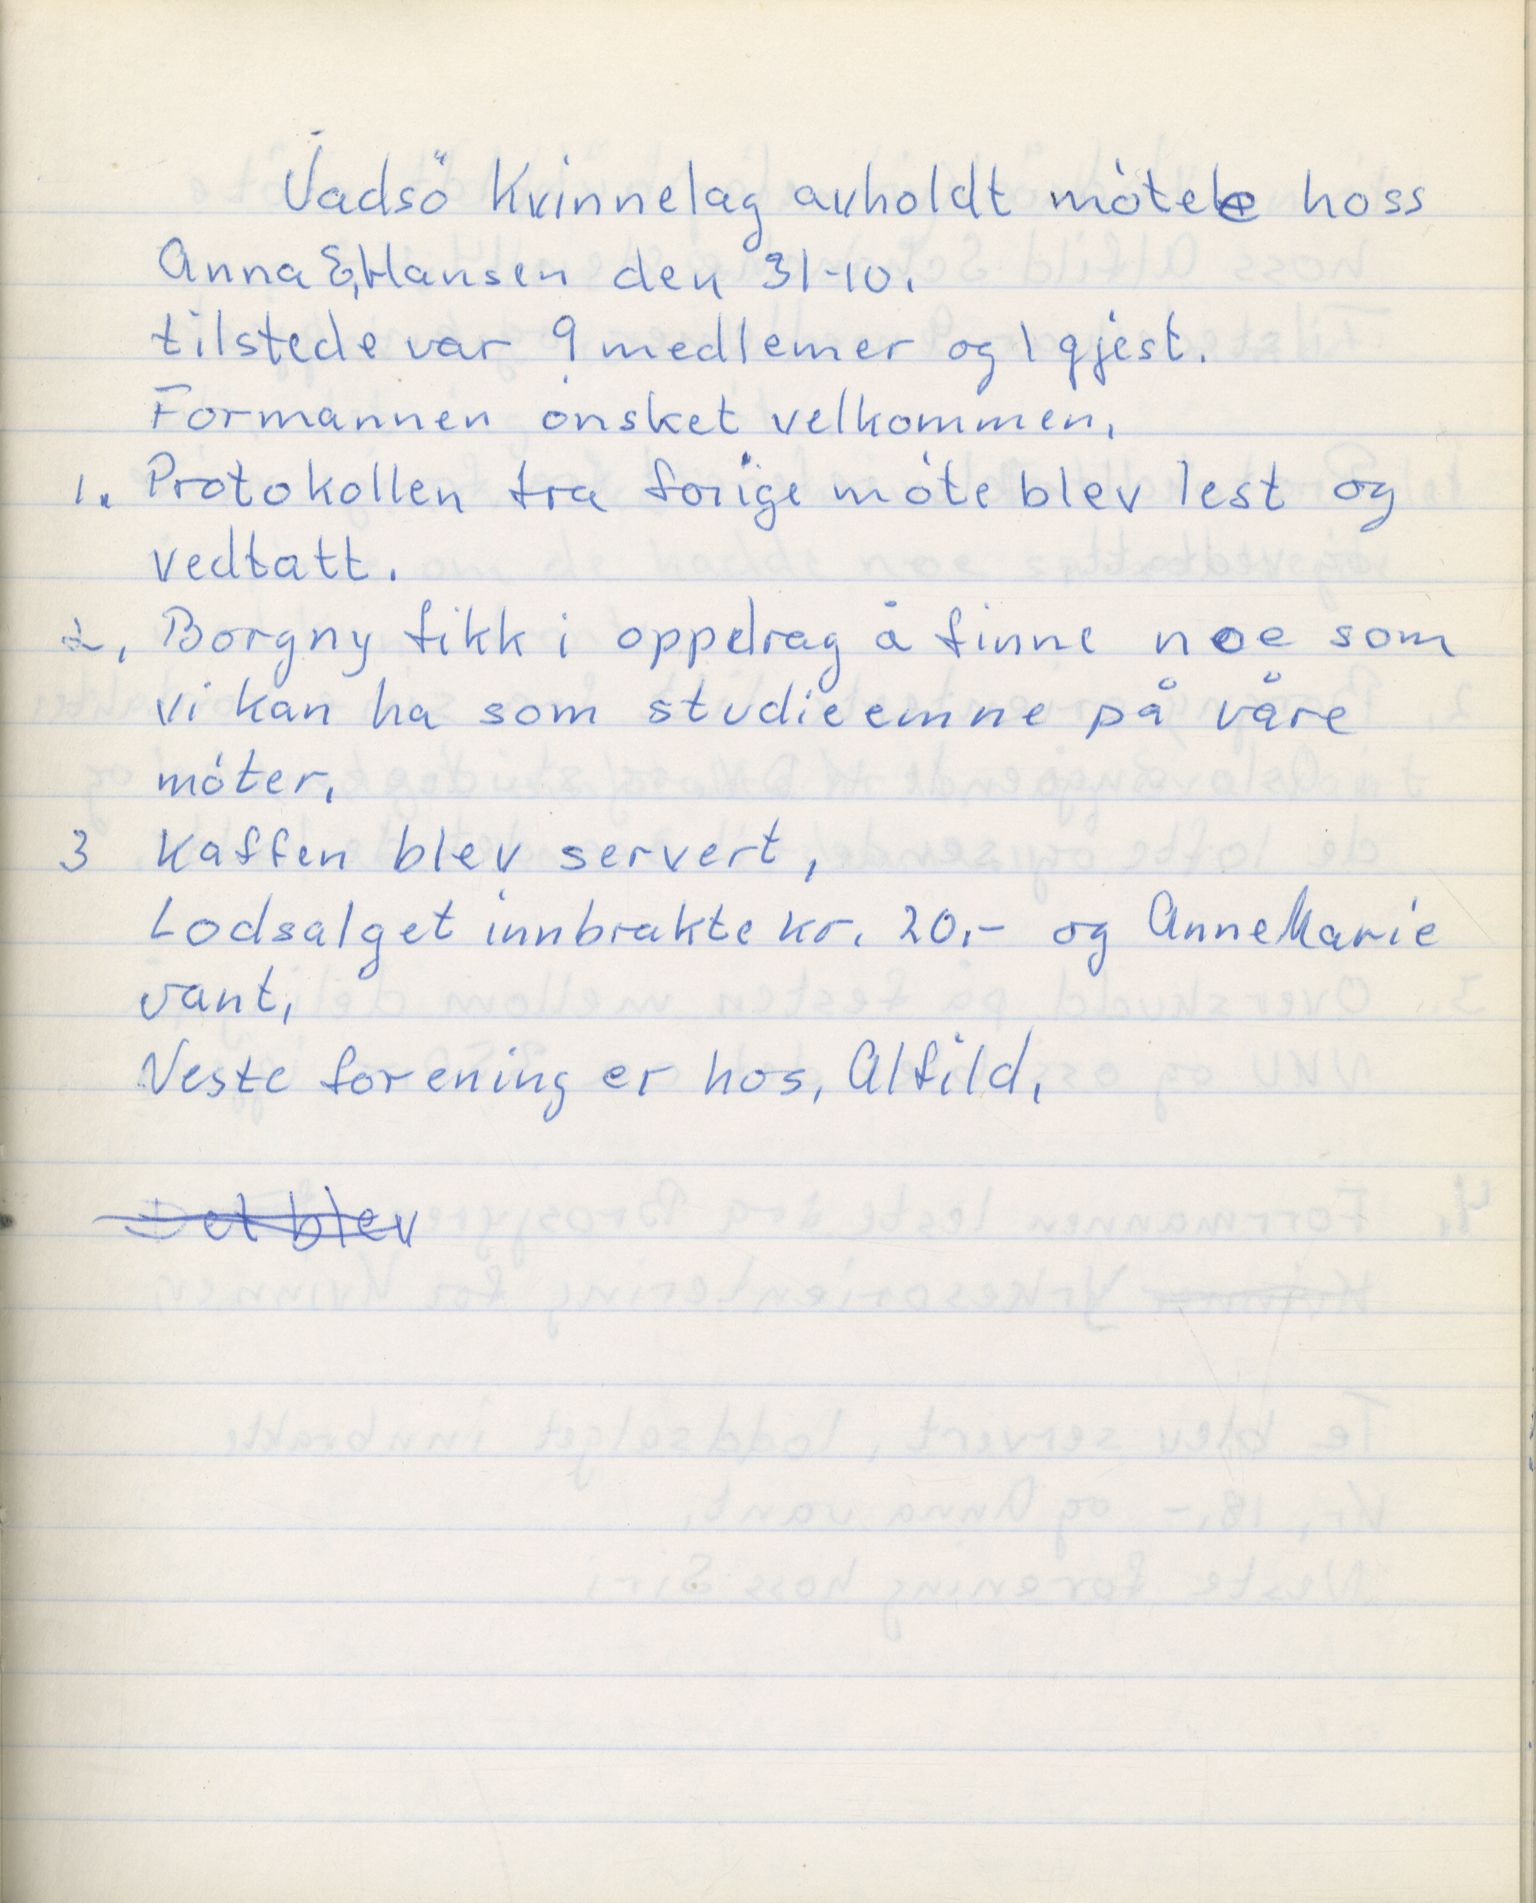 Vadsö Kvinnelag avholdt möte hoss
Anna E, Hansen den 31-10.
tilstede var 9 medlemer og 1 gjest.
Formannen önsket velkommen,
1. Protokollen fra forige möte blev lest og
vedtatt.
2, Borgny fikk i oppdrag å finne noe som
vi kan ha som studieemne på våre
möter,
3 Kaffen blev servert,
Lodsalget innbrakte kr. 20,- og Anne Marie
vant,
Neste forening er hos, Alfild,
Det blev